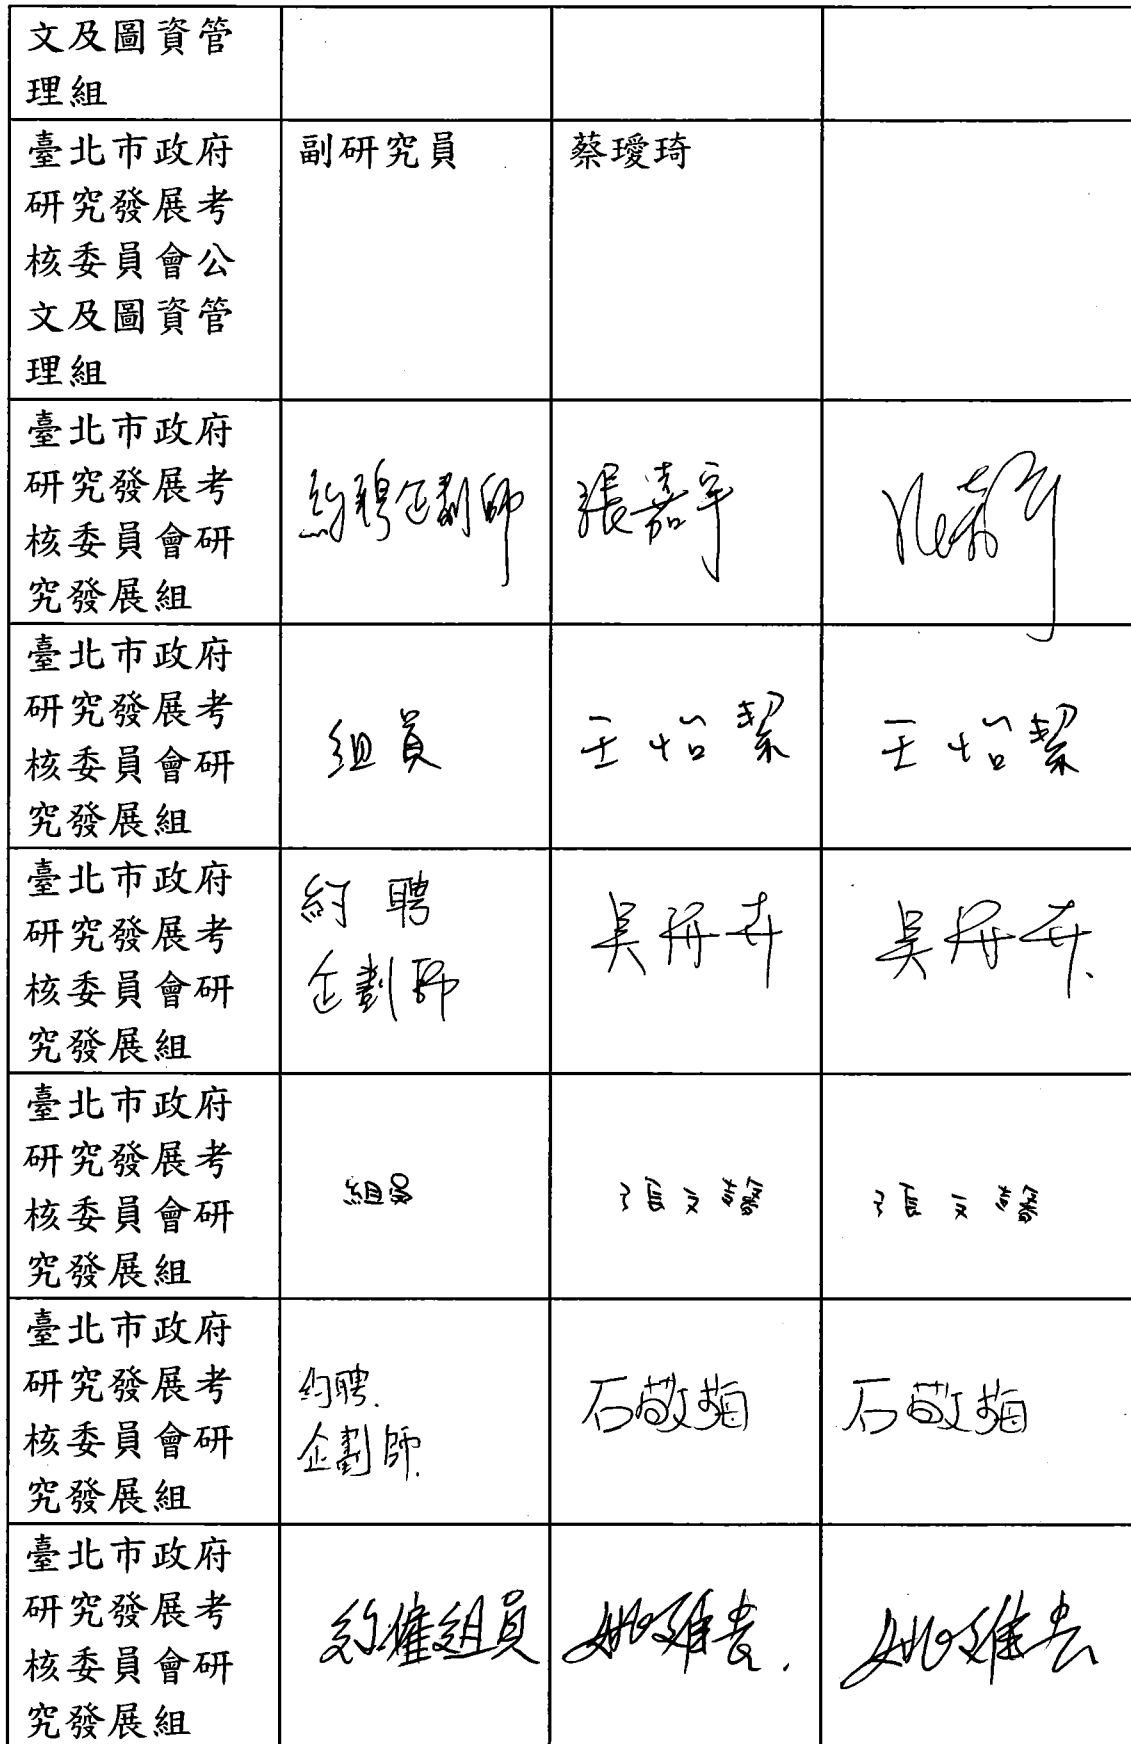 文及圖資管
理組
臺北市政府
研究發展考
核委員會公
文及圖資管
理組
副研究員
蔡璦琦
臺北市政府
研究發展考
核委員會研
究發展組
約聘企劃師
張嘉宇
臺北市政府
研究發展考
核委員會研
究發展組
組員
王怡絜
王怡絜
臺北市政府
研究發展考
核委員會研
究發展組
約聘
企劃師
吳
吳
臺北市政府
研究發展考
核委員會研
究發展組
組員
張文馨
張文馨
臺北市政府
研究發展考
核委員會研
究發展組
約聘
企劃師
石敬梅
石敬梅
臺北市政府
研究發展考
核委員會研
究發展組
約僱組員
姚
姚